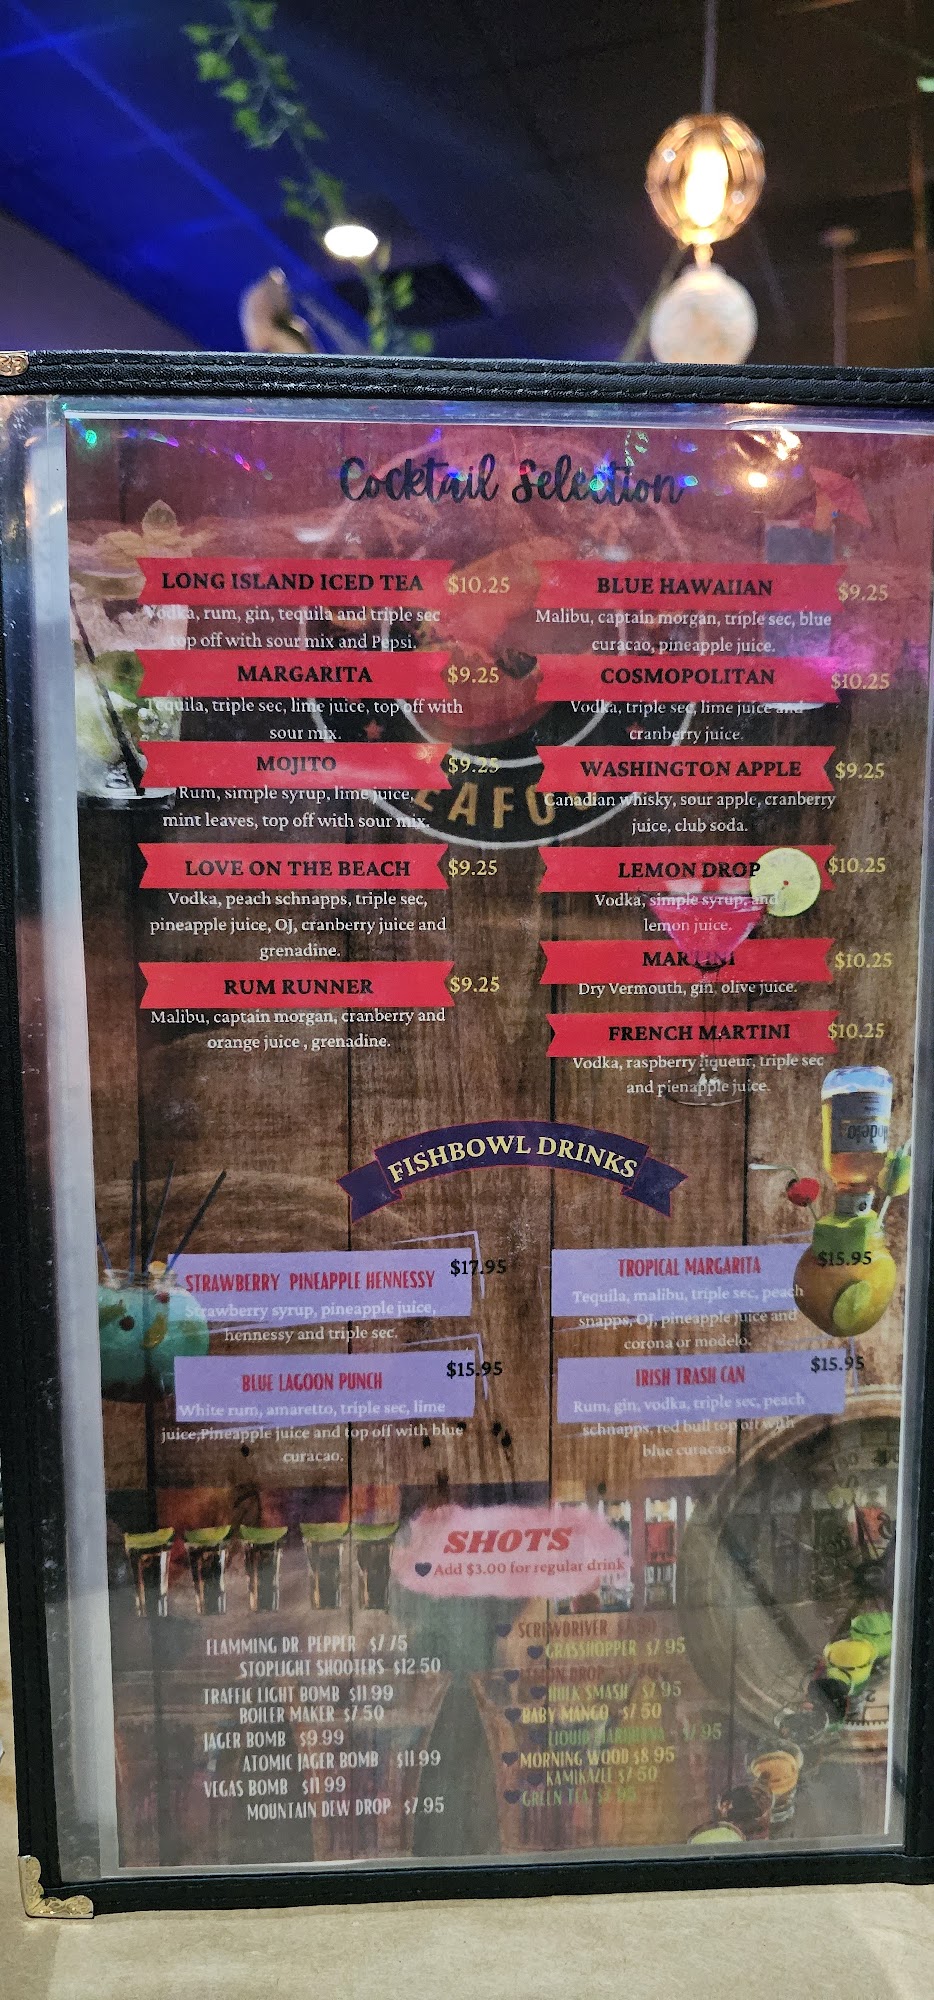 Cocktail Selection
LONG ISLAND ICED TEA $10.25
Vodka, rum, gin, tequila and triple sec
top off with sour mix and Pepsi.
MARGARITA $9.25
Tequila, triple sec, lime juice, top off with
sour mix.
MOJITO $9.25
Rum, simple syrup, lime juice,
mint leaves, top off with sour mix.
LOVE ON THE BEACH $9.25
Vodka, peach schnapps, triple sec,
pineapple juice, OJ, cranberry juice and
grenadine.
RUM RUNNER $9.25
Malibu, captain morgan, cranberry and
orange juice , grenadine.
BLUE HAWAIIAN $9.25
Malibu, captain morgan, triple sec, blue
curacao, pineapple juice.
COSMOPOLITAN $10.25
Vodka, triple sec, lime juice and
cranberry juice.
WASHINGTON APPLE $9.25
Canadian whisky, sour apple, cranberry
juice, club soda.
LEMON DROP $10.25
Vodka, simple syrup, and
lemon juice.
MARTINI $10.25
Dry Vermouth, gin, olive juice.
FRENCH MARTINI $10.25
Vodka, raspberry liqueur, triple sec
and pienapple juice.
FISHBOWL DRINKS
STRAWBERRY PINEAPPLE HENNESSY $17.95
Strawberry syrup, pineapple juice,
hennessy and triple sec.
BLUE LAGOON PUNCH $15.95
White rum, amaretto, triple sec, lime
juice,Pineapple juice and top off with blue
curacao.
TROPICAL MARGARITA $15.95
Tequila, malibu, triple sec, peach
snapps, OJ, pineapple juice and
corona or modelo.
IRISH TRASH CAN $15.95
Rum, gin, vodka, triple sec, peach
schnapps, red bull top off with
blue curacao.
SHOTS
Add $3.00 for regular drink
FLAMMING DR. PEPPER $7.75
STOPLIGHT SHOOTERS $12.50
TRAFFIC LIGHT BOMB $11.99
BOILER MAKER $7.50
JAGER BOMB $9.99
ATOMIC JAGER BOMB $11.99
VEGAS BOMB $11.99
MOUNTAIN DEW DROP $7.95
SCREWDRIVER
GRASSHOPPER $7.95
LEMON DROP
HULK SMASH $7.95
BABY MANGO $7.50
LIQUID MARIJUANA $7.95
MORNING WOOD $8.95
KAMIKAZEE $7.50
GREEN TEA